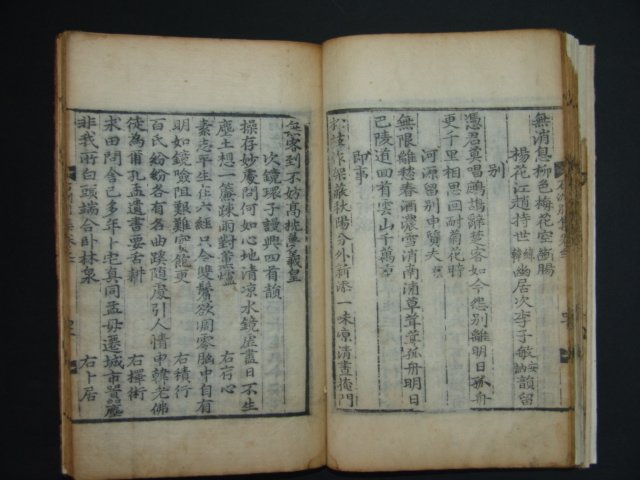 無消息柳色梅花空斷腸
楊花江趙持世幽居次李子敏韻留
別
憑君莫唱鷓鴣辭楚客如今怨別離明日孤舟
更千里相思回耐菊花時
河源留別申質夫
無限離愁春酒濃雪消南浦草茸茸孤舟明日
己陵道回首雲山千萬重
即事
松 作架蔽秋陽分外新添一味凉清晝掩門
無客到不妨高枕 羲皇
次鏡環子謾興四首韻
操存妙處問何如心地清凉水鏡虛盡日不生
塵土想一簾踈雨對薰爐 右存心
素志平生在六經只今雙鬢欲凋零腦中自有
明如鏡險阻艱難實 更 右積行
百氏紛紛各有名曲蹊隨處引人情申韓老佛
徒為爾孔孟遺書要舌耕 右擇術
求田問舍已多年卜宅真同孟母遷城市 塵
非我所白頭端合臥林泉 右卜居